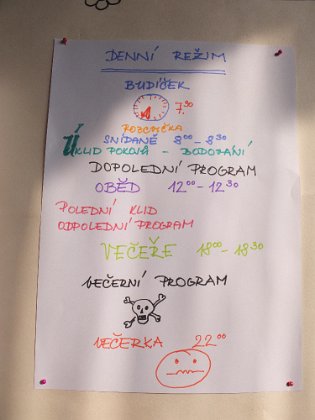 DENNÍ REŽIM
BUDÍČEK
7.30
ROZCVIČKA
SNÍDANĚ 8 00 - 8 30
ÚKLID POKOJŮ - BODOVÁNÍ
DOPOLEDNÍ PROGRAM
OBĚD 12 00 - 12 30
POLEDNÍ KLID
ODPOLEDNÍ PROGRAM
VEČEŘE 18 00 - 18 30
VEČERNÍ PROGRAM
VEČERKA 22 00